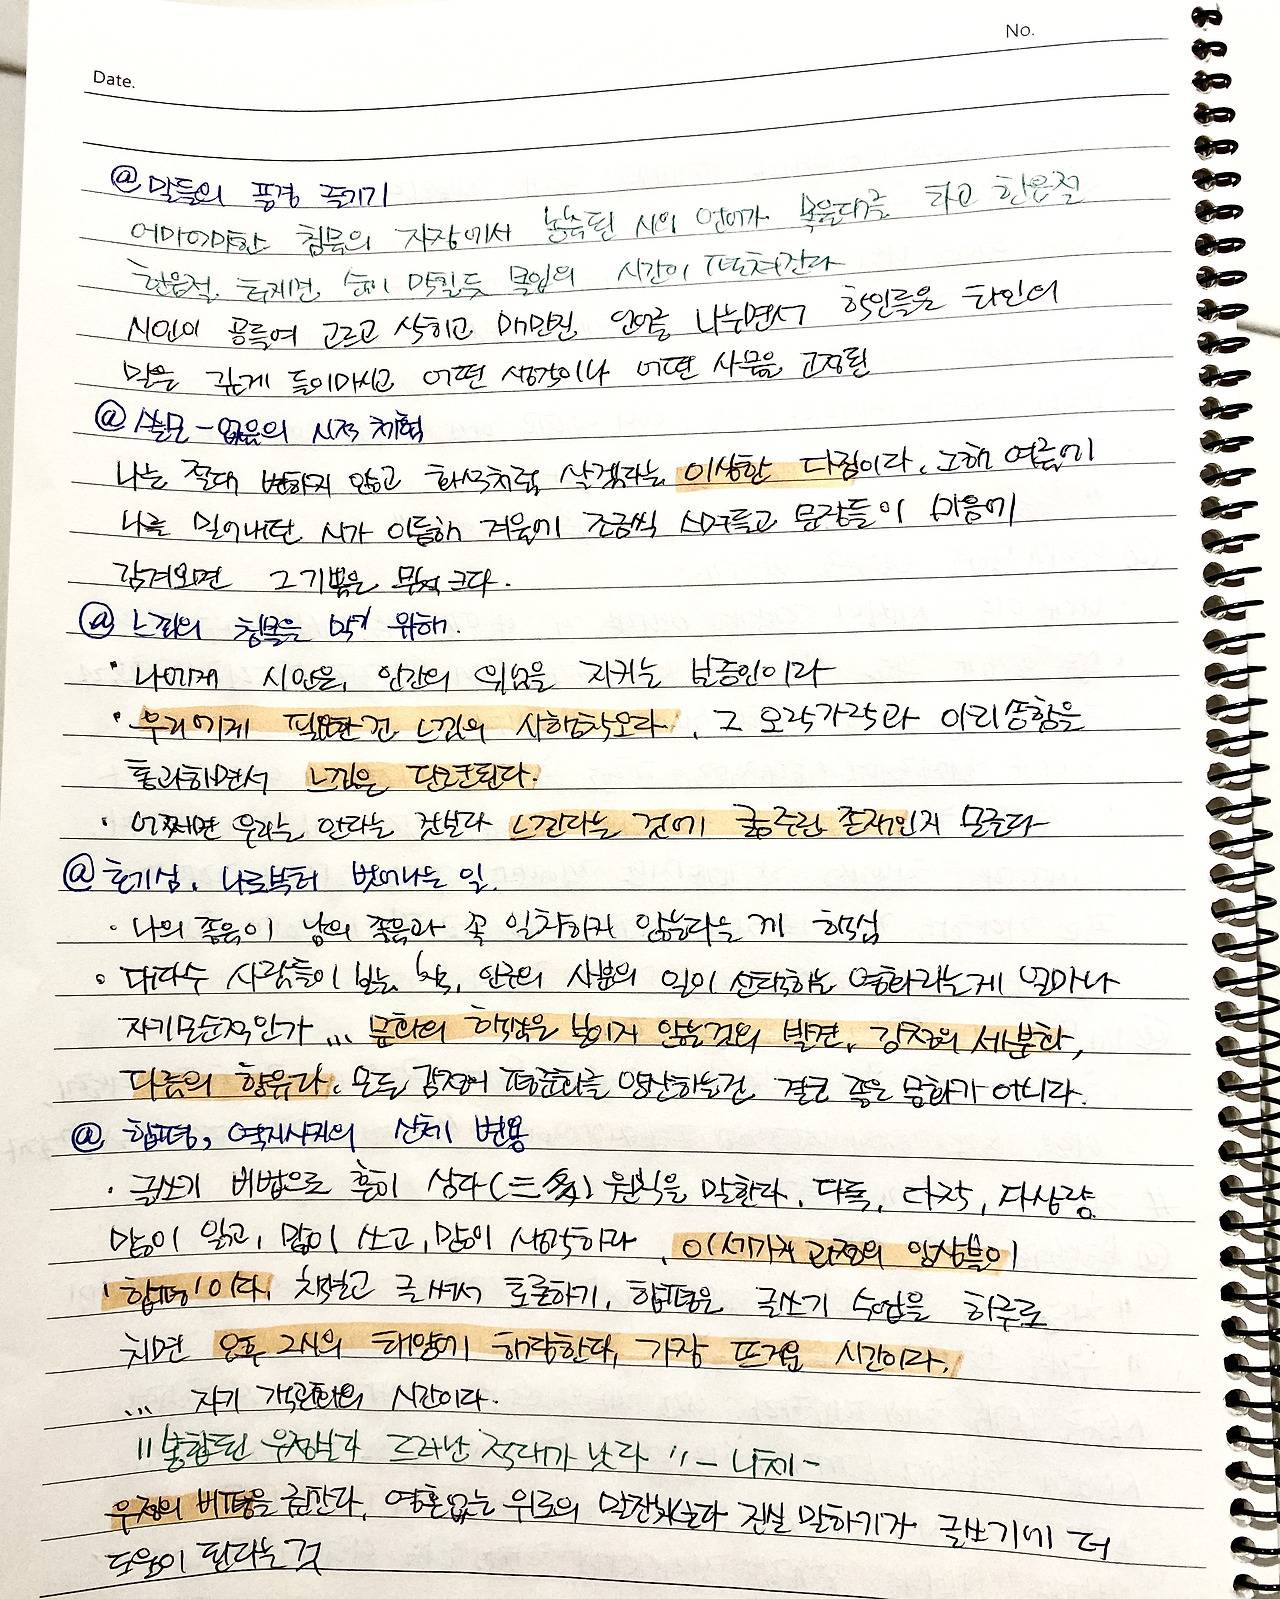 No.
Date.
@ 말들의 풍경 즐기기
어마어마한 침묵의 자장에서 농축된 시의 언어가 목울대를 타고 한음절
한음절 터지면 숨이 막힐듯 몰입의 시간이 펼쳐진다
시인이 공들여 고르고 삭히고 매만진 언어를 나누면서 학인들은 타인의
말을 깊게 들이마시고 어떤 생각이나 어떤 사물을 고정된
@ 쓸모-없음의 시적 체험
나는 절대 변하지 않고 화석처럼 살겠다는 이상한 다짐이라. 그해 여름에
나를 밀어내던 시가 이듬해 겨울에 조금씩 스며들고 문장들이 마음에
감겨오면 그 기쁨은 무척 크다.
@ 느낌의 침몰을 막기 위해.
• 나에게 시인은, 인간의 위엄을 지키는 보증인이라
• 우리에게 필요한건 느낌의 시행착오라. 그 오락가락과 아리송함을
통과하면서 느낌은 단련된다.
• 어쩌면 우리는 안다는 것보다 느낀다는 것에 굶주린 존재인지 모른다
@ 호기심, 나로부터 벗어나는 일.
• 나의 좋음이 남의 좋음과 꼭 일치하지 않는다는 게 핵심
• 대다수 사람들이 보는 책, 인구의 사분의 일이 선택하는 영화라는게 얼마나
자기모순적인가 ... 문화의 핵심은 보이지 않는것의 발견, 감정의 세분화,
다름의 향유다. 모든 감정에 평준화를 양산하는건 결코 좋은 문화가 아니다.
@ 합평, 역지사지의 신체 변용
• 글쓰기 비법으로 흔히 삼다(三多) 원칙을 말한다. 다독, 다작, 다상량.
많이 읽고, 많이 쓰고, 많이 생각하라. 이 세가지 과정의 압상블이
'합평'이다. 책읽고 글 써서 토론하기. 합평은 글쓰기 수업을 하루로
치면 오후 2시의 태양에 해당한다. 가장 뜨거운 시간이다.
... 자기 객관화의 시간이다.
"봉합된 우정보다 드러난 적대가 낫다" - 니체 -
우정의 비평을 금한다. 영혼없는 위로의 말잔치보다 진실 말하기가 글쓰기에 더
도움이 된다는것